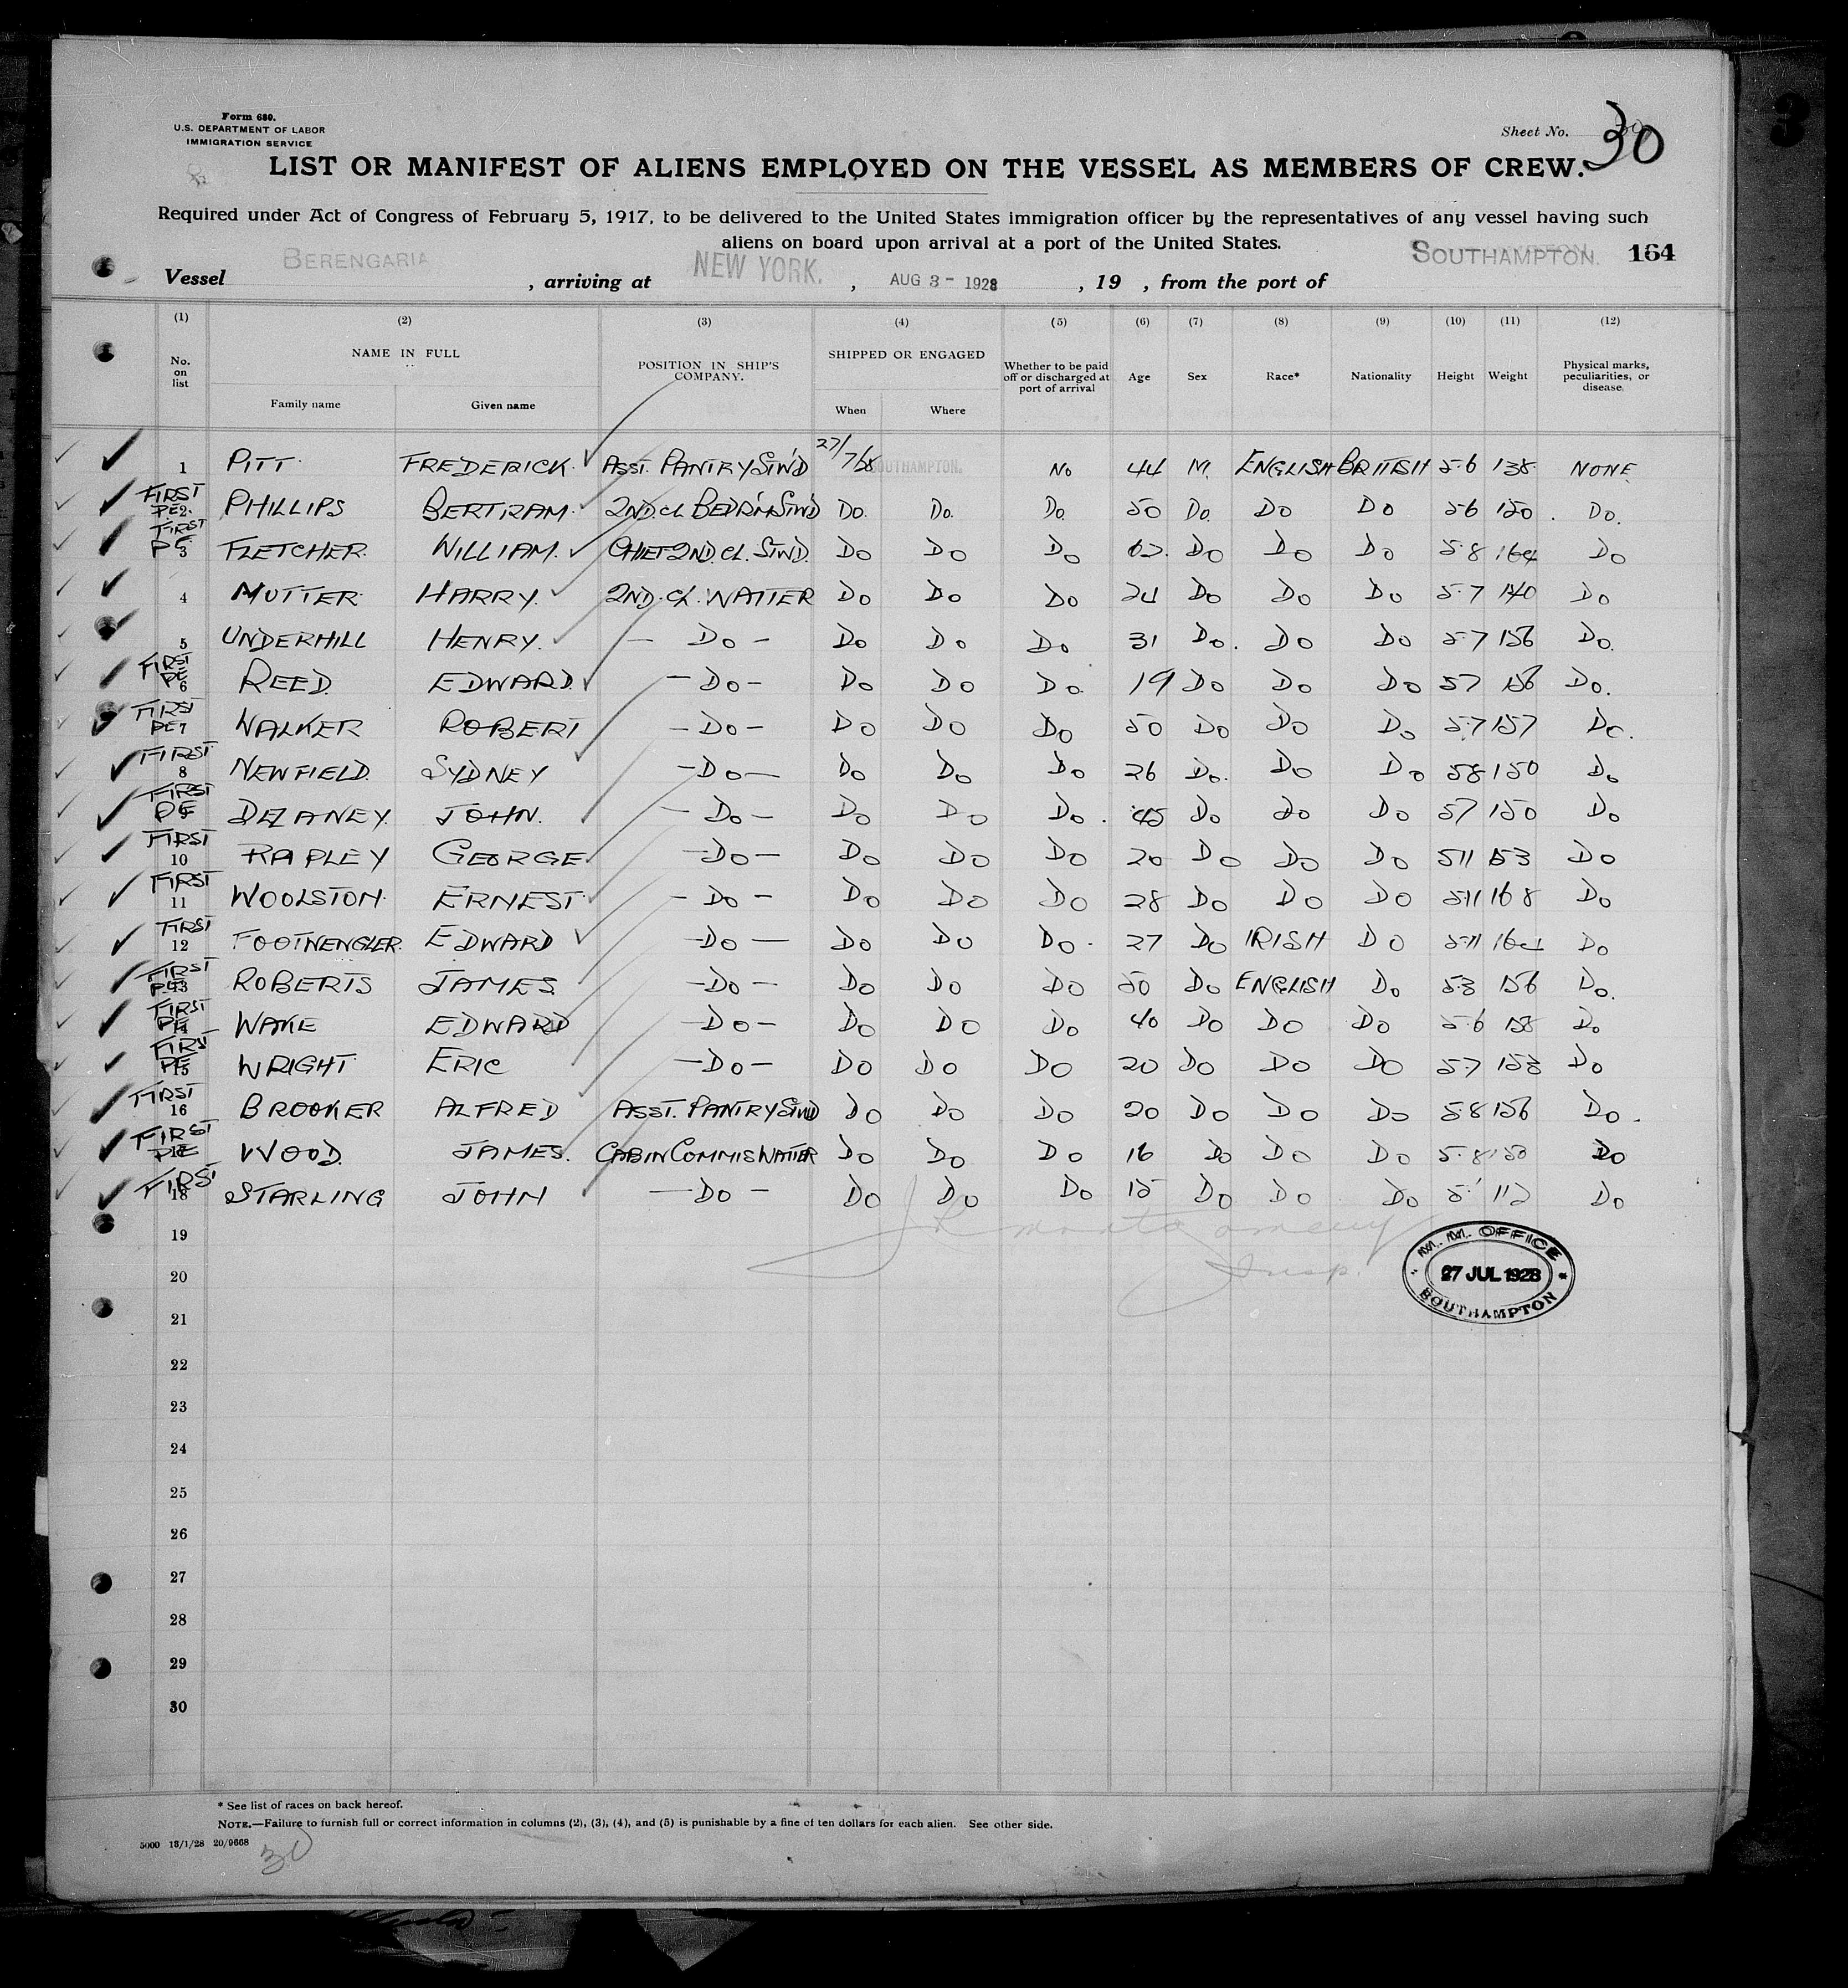 Form 680.
U.S. DEPARTMENT OF LABOR
IMMIGRATION SERVICE
Sheet No. 30
LIST OR MANIFEST OF ALIENS EMPLOYED ON THE VESSEL AS MEMBERS OF CREW.
Required under Act of Congress of February 5, 1917, to be delivered to the United States immigration officer by the representatives of any vessel having such
aliens on board upon arrival at a port of the United States.
164
Vessel BERENGARIA, arriving at NEW YORK., AUG 3 - 1928, 19 , from the port of SOUTHAMPTON.
(1) (2) (3) (4) (5) (6) (7) (8) (9) (10) (11) (12)
No. on list NAME IN FULL POSITION IN SHIP'S COMPANY. SHIPPED OR ENGAGED Whether to be paid off or discharged at port of arrival Age Sex Race* Nationality Height Weight Physical marks, peculiarities, or disease.
Family name Given name When Where
1 PITT FREDERICK ASST. PANTRY STWD 27/7/28 SOUTHAMPTON. NO 44 M. ENGLISH BRITISH 5.6 138 NONE
FIRST PE 2 PHILLIPS BERTRAM. 2ND.CL BEDRM STWD DO. DO. DO. 50 DO. DO DO 5.6 150 DO.
FIRST PE 3 FLETCHER. WILLIAM. CHIEF 2ND.CL. STWD. DO DO DO DO DO DO 5.8 164 DO
4 MUTTER HARRY. 2ND.CL. WAITER DO DO DO 24 DO DO DO 5.7 140 DO
5 UNDERHILL HENRY. - DO - DO DO DO 31 DO. DO DO 5.7 156 DO.
FIRST PE 6 REED. EDWARD. - DO - DO DO DO. 19 DO DO DO 5.7 156 DO.
FIRST PE 7 WALKER ROBERT - DO - DO DO DO 50 DO DO DO 5.7 157 DO.
FIRST 8 NEWFIELD. SYDNEY - DO - DO DO DO 26 DO. DO DO 5.8 150 DO
FIRST PE 9 DELANEY. JOHN. - DO - DO DO DO. 45 DO DO DO 5.7 150 DO
FIRST 10 RAPLEY GEORGE - DO - DO DO DO 20 DO DO DO 5.11 153 DO
FIRST 11 WOOLSTON ERNEST - DO - DO DO DO 28 DO DO DO 5.11 168 DO
FIRST 12 EDWARD - DO - DO DO DO. 27 DO IRISH DO 5.11 164 DO
FIRST PE 13 ROBERTS JAMES. - DO - DO DO DO 50 DO ENGLISH DO 5.8 156 DO.
FIRST PE 14 WAKE EDWARD - DO - DO DO DO 40 DO DO DO 5.6 158 DO
FIRST PE 15 WRIGHT ERIC - DO - DO DO DO 20 DO DO DO 5.7 153 DO
FIRST 16 BROOKER ALFRED ASST. PANTRY STWD DO DO DO 20 DO DO DO 5.8 156 DO.
FIRST PE 17 WOOD. JAMES. CABIN COMMIS WAITER DO DO DO 16 DO DO DO 5.8 150 DO
FIRST 18 STARLING JOHN - DO - DO DO DO 15 DO DO DO 5. 112 DO
19
Montgomery
20
Insp.
M. M. OFFICE
27 JUL 1928
SOUTHAMPTON
21
22
23
24
25
26
27
28
29
30
* See list of races on back hereof.
NOTE.—Failure to furnish full or correct information in columns (2), (3), (4), and (5) is punishable by a fine of ten dollars for each alien. See other side.
5000 13/1/28 20/9668
30